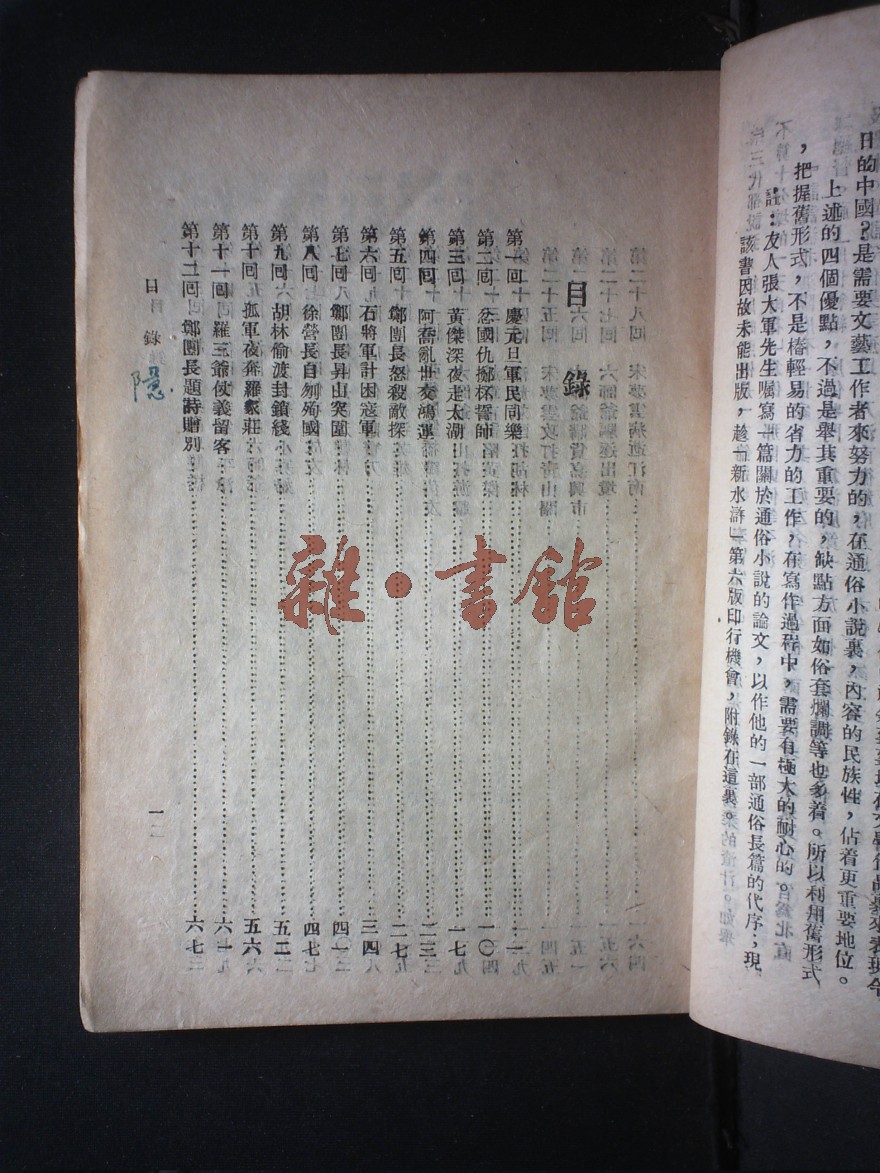 日的中國？是需要文藝工作者來努力的，在通俗小說裏，內容的民族性，佔着更重要地位。
上述的四個優點，不過是舉其重要的，缺點方面如俗套爛調等也多着。所以利用舊形式
，把握舊形式，不是樁輕易的省力的工作，在寫作過程中，需要有極大的耐心的。
註：友人張大軍先生囑寫一篇關於通俗小說的論文，以作他的一部通俗長篇的代序；現
該書因故未能出版，趁「新水滸」第六版印行機會，附錄在這裏。
目錄
第一回 慶元旦軍民同樂
第二回 忿國仇擲杯誓師
第三回 黃傑深夜走太湖 一七
第四回 阿喬亂世交鴻運
第五回 鄭團長怒殺敵探 二七
第六回 石將軍計困寇軍 三四
第七回 鄭團長昇山突圍
第八回 徐營長自刎殉國 四七
第九回 胡林偷渡封鎖綫 五二
第十回 孤軍夜奔羅家莊 五六
第十一回 羅三爺仗義留客 六一
第十二回 鄭團長題詩贈別 六七
目錄
一
雜·書館